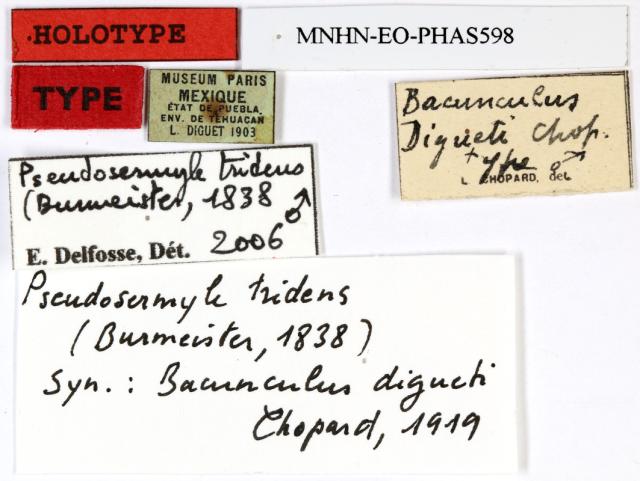 .HOLOTYPE
MNHN-EO-PHAS598
TYPE
MUSEUM PARIS
MEXIQUE
ÉTAT DE PUEBLA
ENV. DE TEHUACAN
L. DIGUET 1903
Bacunculus
Digueti Chop.
type ♂
L. CHOPARD, det.
Pseudosermyle tridens
(Burmeister, 1838 ♂
E. Delfosse, Dét. 2006
Pseudosermyle tridens
(Burmeister, 1838)
Syn. : Bacunculus digueti
Chopard, 1919